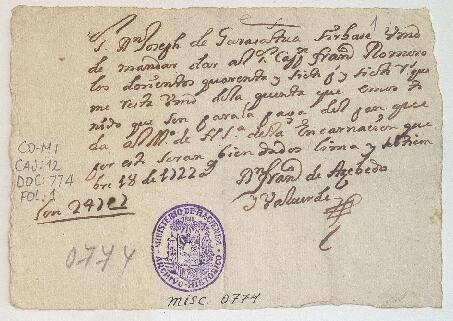 1
S. Dn Joseph de Garasatua Sirbase Vmd
de mandar dar al Sr Cappn Frano Romero
los doscientos quarenta y siete ps y siete rs que
me resta Vmd de la quenta que emos te
nido que son para la paga del pan que
da al Mo de Na Sa de la Encarnacion que
por esta seran bien dados Lima y
bre 18 de 1722 as
Dn Frano de Azebedo
y Valuerde
Son 247 p 7
CO-M1
CAJ: 12
DOC: 774
FOL: 1
0774
MINISTERIO DE HACIENDA
ARCHIVO HISTORICO
misc. 0774